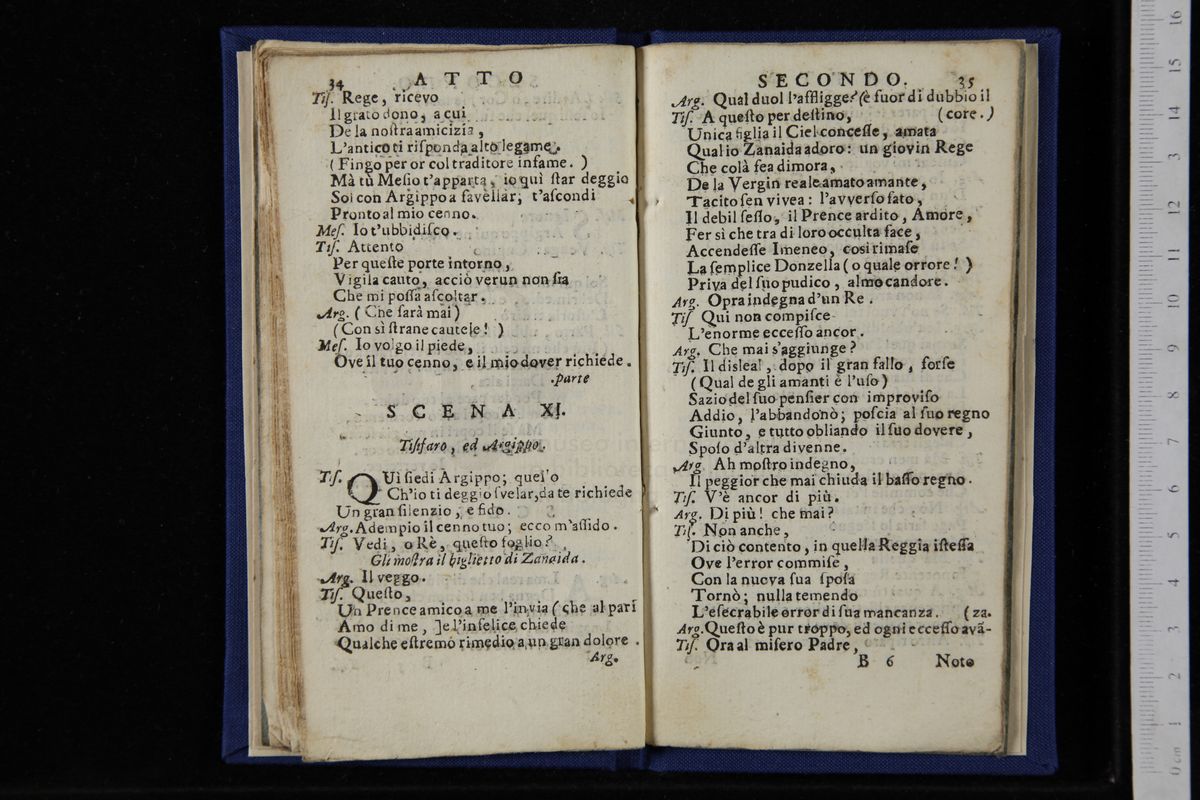 34 ATTO
Tiſ. Rege, ricevo
Il grato dono, a cui
De la noſtra amicizia,
L'antico ti riſponda alto legame.
(Fingo per or col traditore infame. )
Mà tù Meſio t'apparta, io quì ſtar deggio
Sol con Argippo a favellar; t'aſcondi
Pronto al mio cenno.
Meſ. Io t'ubbidiſco.
Tiſ. Attento
Per queſte porte intorno,
Vigila cauto, acciò verun non ſia
Che mi poſſa aſcoltar.
Arg. ( Che farà mai )
(Con sì ſtrane cautele! )
Meſ. Io volgo il piede,
Ove il tuo cenno, e il mio dover richiede.
parte
SCENA XI.
Tiſifaro, ed Argippo.
Tiſ. QUì ſiedi Argippo; quel'o
Ch'io ti deggio ſvelar, da te richiede
Un gran ſilenzio, e fido.
Arg. Adempio il cenno tuo; ecco m'aſſido.
Tiſ. Vedi, o Rè, queſto foglio?
Gli moſtra il biglietto di Zanaida.
Arg. Il veggo.
Tiſ. Queſto,
Un Prence amico a me l'invia (che al pari
Amo di me, ]e l'infelice chiede
Qualche eſtremo rimedio a un gran dolore.
Arg.
SECONDO. 35
Arg. Qual duol l'affligge? (è fuor di dubbio il
Tiſ. A queſto per deſtino, (core.)
Unica figlia il Ciel conceſſe, amata
Qual io Zanaida adoro: un giovin Rege
Che colà fea dimora,
De la Vergin reale amato amante,
Tacito ſen vivea: l'avverſo fato,
Il debil ſeſſo, il Prence ardito, Amore,
Fer sì che tra di loro occulta face,
Accendeſſe Imeneo, così rimaſe
La ſemplice Donzella (o quale orrore! )
Priva del ſuo pudico, almo candore.
Arg. Opra indegna d'un Re.
Tiſ Qui non compiſce
L'enorme ecceſſo ancor.
Arg. Che mai s'aggiunge?
Tiſ. Il disleal, dopo il gran fallo, forſe
(Qual de gli amanti è l'uſo)
Sazio del ſuo penſier con improviſo
Addio, l'abbandonò; poſcia al ſuo regno
Giunto, e tutto obliando il ſuo dovere,
Spoſo d'altra divenne.
Arg. Ah moſtro indegno,
Il peggior che mai chiuda il baſſo regno.
Tiſ. V'è ancor di più.
Arg. Di più! che mai?
Tiſ. Non anche,
Di ciò contento, in quella Reggia iſteſſa
Ove l'error commiſe,
Con la nuova ſua ſpoſa
Tornò; nulla temendo
L'eſecrabile error di ſua mancanza. (za.
Arg. Queſto è pur troppo, ed ogni ecceſſo avã-
Tiſ. Ora al miſero Padre,
B 6 Noto
0 cm 1 2 3 4 5 6 7 8 9 10 11 12 13 14 15 16